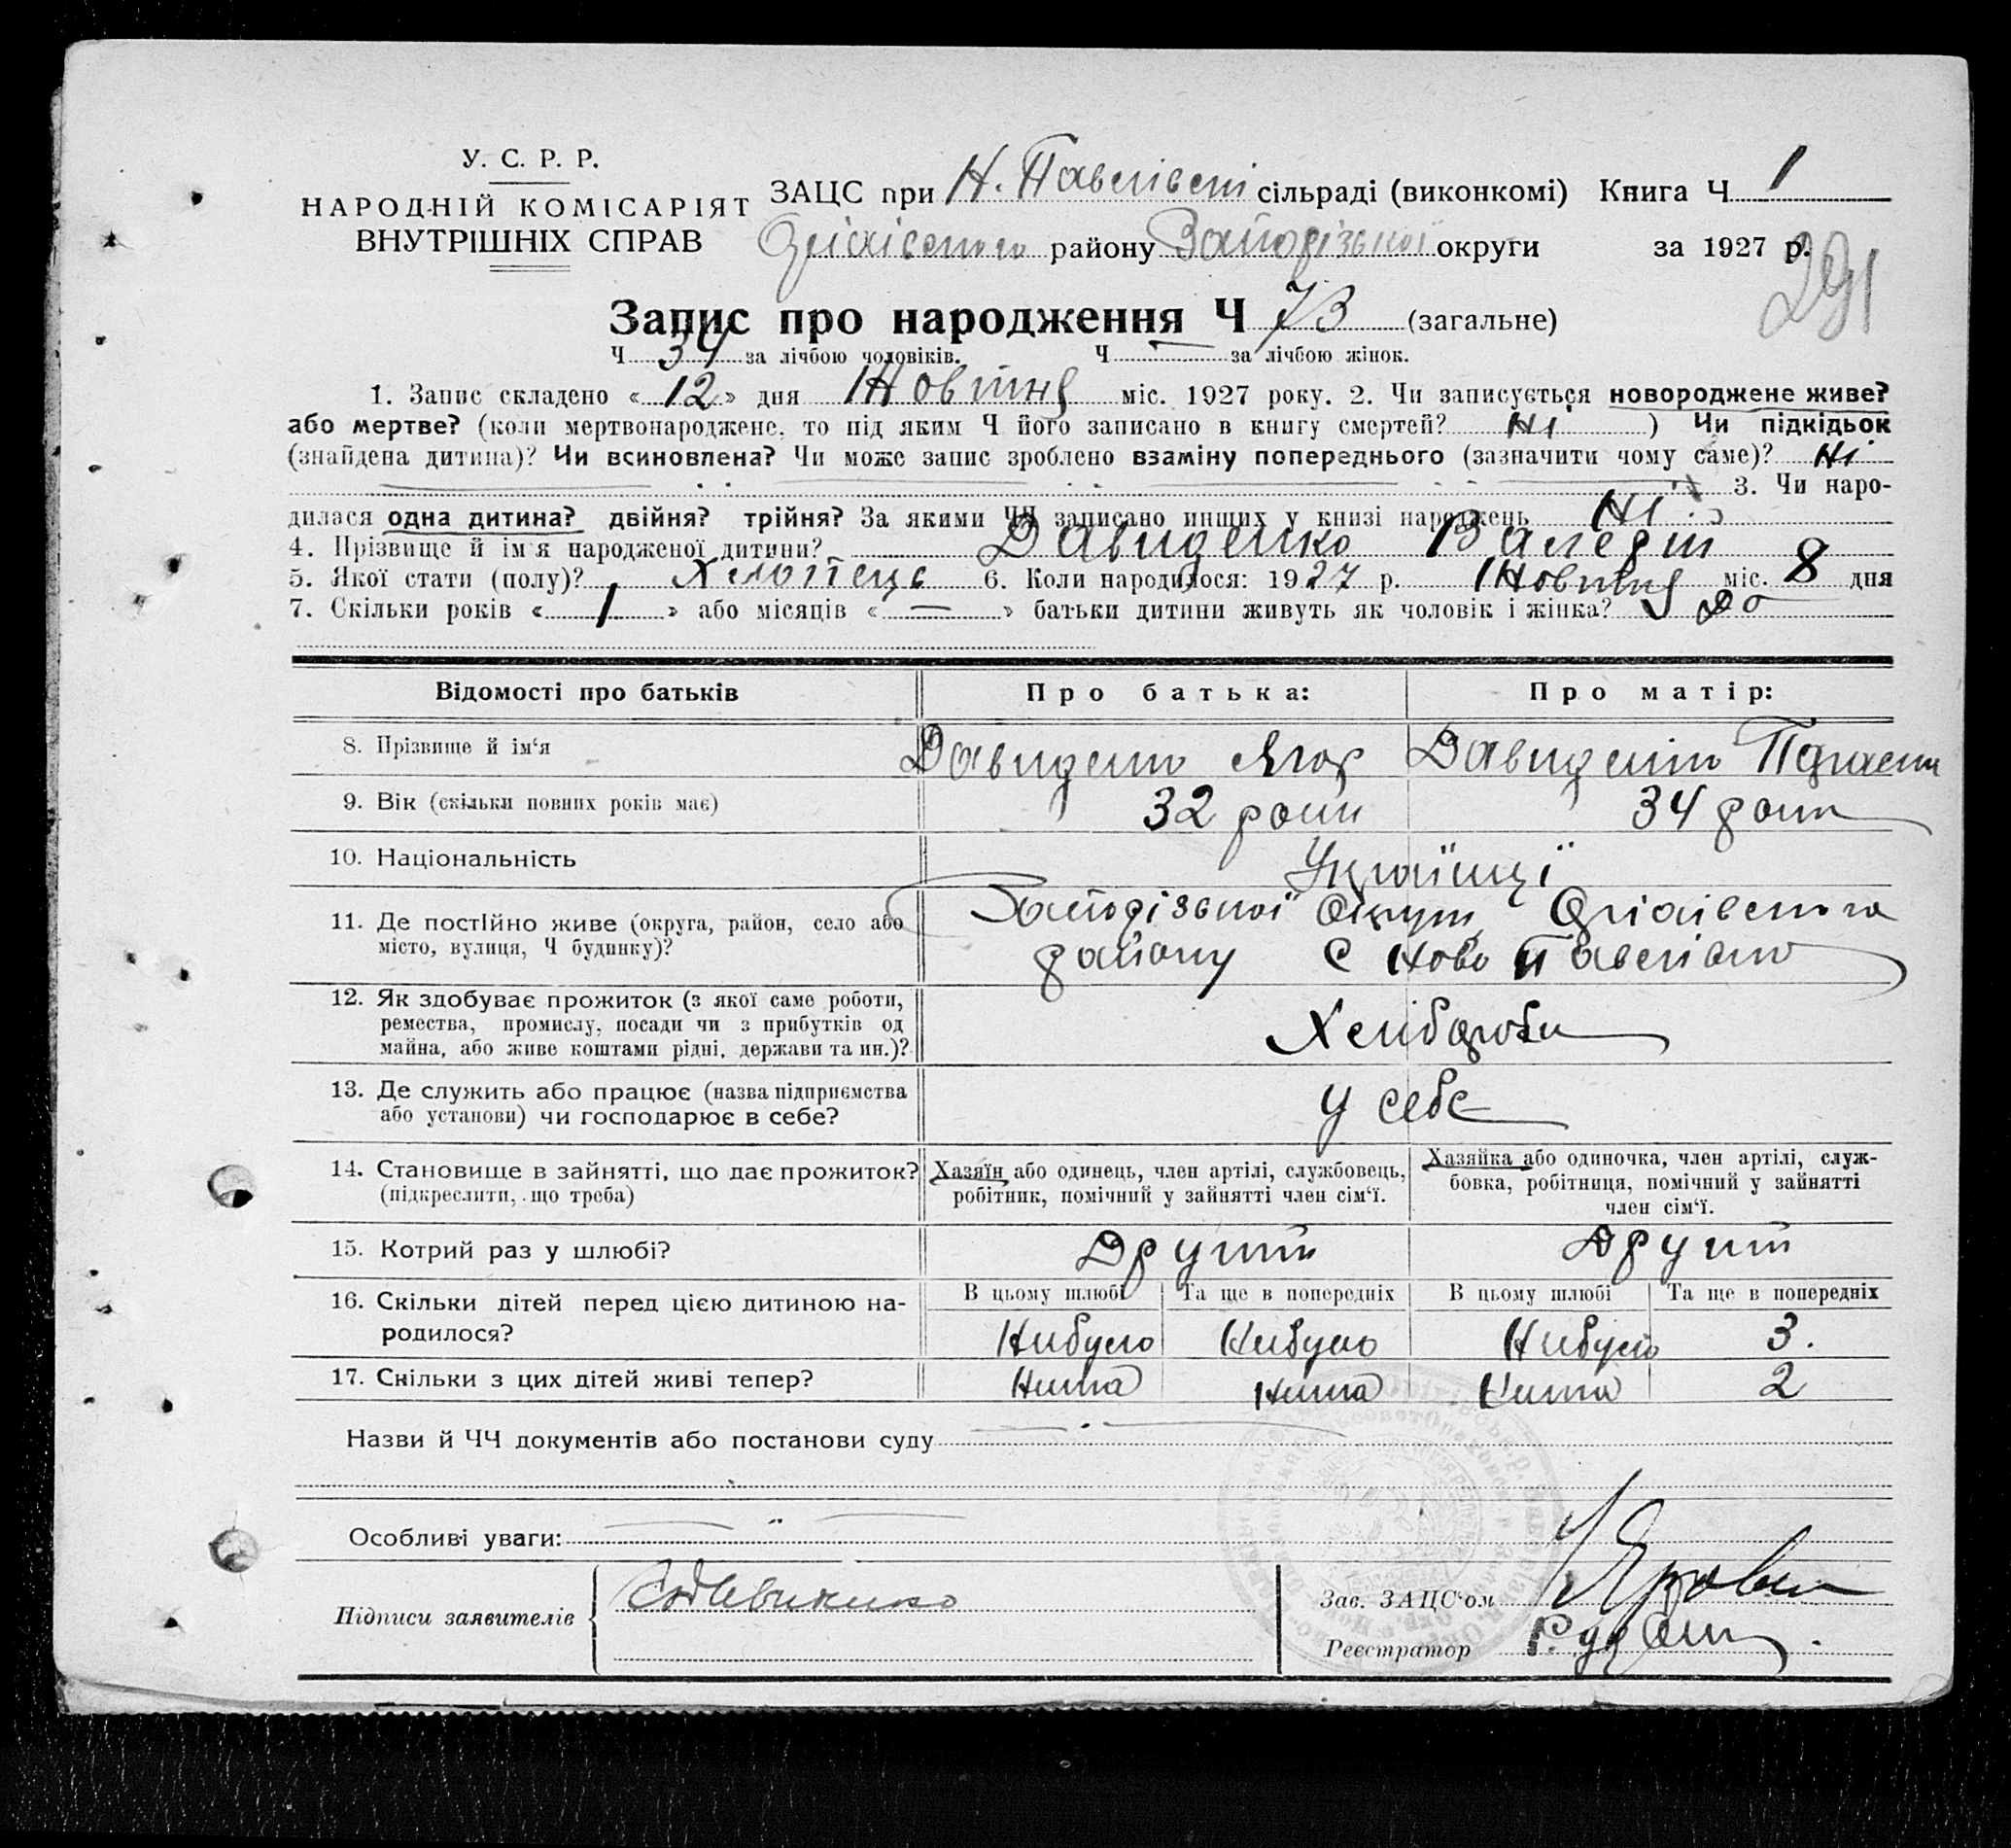 У. С. Р. Р.
НАРОДНІЙ КОМІСАРІЯТ
ВНУТРІШНІХ СПРАВ
ЗАЦС при Н. Павлівській сільраді (виконкомі) Книга Ч 1
району Запорізької округи за 1927 р.
291
Запис про народження Ч 73 (загальне)
Ч 34 за лічбою чоловіків. Ч — за лічбою жінок.
1. Запис складено «12» дня Жовтня міс. 1927 року. 2. Чи записується новороджене живе?
або мертве? (коли мертвонароджене, то під яким Ч його записано в книгу смертей? Ні ) Чи підкідьок
(знайдена дитина)? Чи всиновлена? Чи може запис зроблено взаміну попереднього (зазначити чому саме)? Ні
3. Чи наро-
дилася одна дитина? двійня? трійня? За якими ЧЧ записано инших у книзі народжень Ні
4. Прізвище й ім'я народженої дитини? Давиденко Валерій
5. Якої стати (полу)? Хлопець 6. Коли народилося: 1927 р. Жовтня міс. 8 дня
7. Скільки років «1» або місяців «—» батьки дитини живуть як чоловік і жінка?
Відомості про батьків Про батька: Про матір:
8. Прізвище й ім'я Давиденко Ягор Давиденко
9. Вік (скільки повних років має) 32 роки 34 роки
10. Національність Українці
11. Де постійно живе (округа, район, село або
місто, вулиця, Ч будинку)?
Запорізької Округи
району С Ново Павлівка
12. Як здобуває прожиток (з якої саме роботи,
ремества, промислу, посади чи з прибутків од
майна, або живе коштами рідні, держави та ин.)?
Хлібороби
13. Де служить або працює (назва підприємства
або установи) чи господарює в себе?
у себе
14. Становище в зайнятті, що дає прожиток?
(підкреслити, що треба)
Хазяїн або одинець, член артілі, службовець,
робітник, помічний у зайнятті член сім'ї.
Хазяйка або одиночка, член артілі, служ-
бовка, робітниця, помічний у зайнятті
член сім'ї.
15. Котрий раз у шлюбі? Другий Другий
16. Скільки дітей перед цією дитиною на-
родилося?
В цьому шлюбі Та ще в попередніх В цьому шлюбі Та ще в попередніх
Нибуло Нибуло Нибуло 3.
17. Скільки з цих дітей живі тепер? Нима Нима Нима 2
Назви й ЧЧ документів або постанови суду
Особливі уваги:
Підписи заявителів
Зав. ЗАЦС'ом
Реєстратор